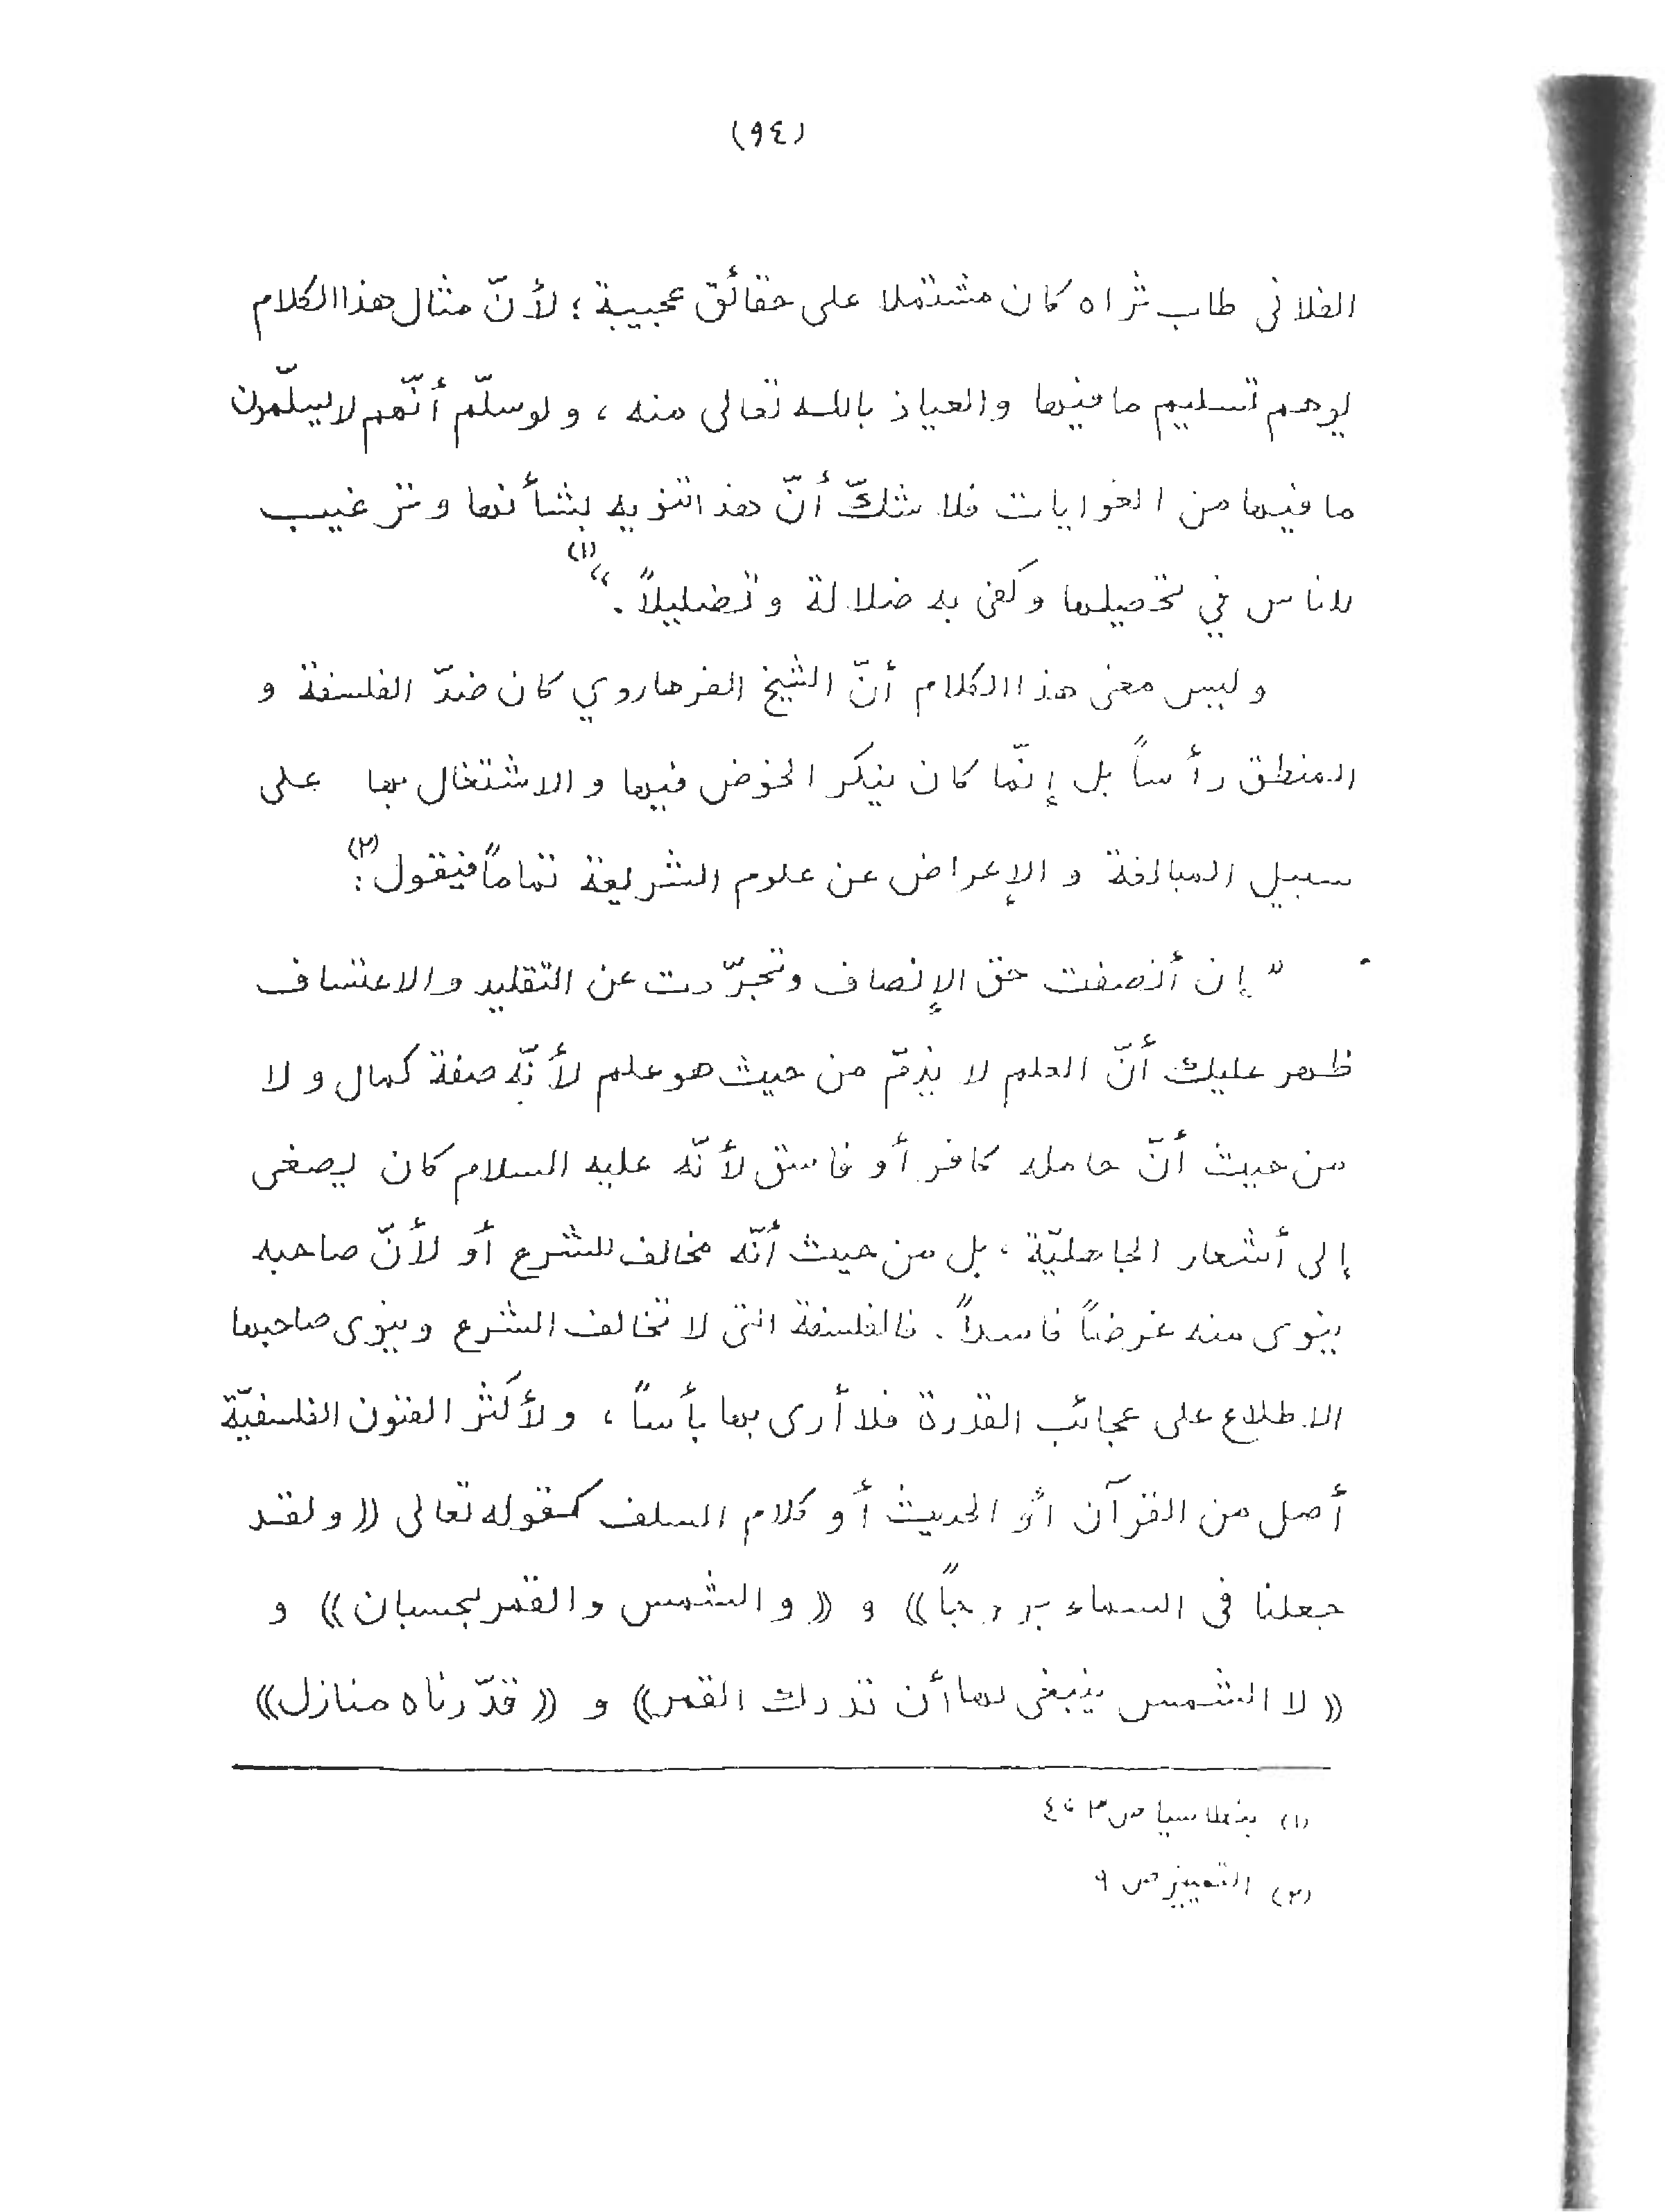 (٩٤)
الفلاني طاب ثراه كان مشتملا على حقائق عجيبة؛ لأنّ مثال هذا الكلام
يوهم تسليم ما فيها والعياذ بالله تعالى منه، ولو سلّم أنّهم لا يسلّمون
ما فيها من الغوايات فلا شكّ أنّ هذا تنويه بشأنها وترغيب
للناس في تحصيلها وكفى به ضلالة وتضليلاً."(١)
وليس معنى هذا الكلام أنّ الشيخ الفرهاروي كان ضدّ الفلسفة و
المنطق رأساً بل إنّما كان ينكر الخوض فيها والاشتغال بها على
سبيل المبالغة والإعراض عن علوم الشريعة تماماً فيقول:(٢)
"إن أنصفت حق الإنصاف وتجرّدت عن التقليد والاعتساف
ظهر عليك أنّ العلم لا يذمّ من حيث هو علم لأنّه صفة كمال ولا
من حيث أنّ حامله كافر أو فاسق لأنّه عليه السلام كان يصغى
إلى أشعار الجاهليّة، بل من حيث أنّه مخالف للشرع أو لأنّ صاحبه
ينوى منه غرضاً فاسداً. فالفلسفة التى لا تخالف الشرع وينوى صاحبها
الاطلاع على عجائب القدرة فلا أرى بها بأساً، ولأكثر الفنون الفلسفيّة
أصل من القرآن أو الحديث أو كلام السلف كقوله تعالى ((ولقد
جعلنا فى السماء بروجاً)) و ((والشمس والقمر بحسبان)) و
((لا الشمس ينبغى لها أن تدرك القمر)) و ((قدّرناه منازل))
(١) بنطاسيا ص ٤٠٣
(٢) التمييز ص ٦